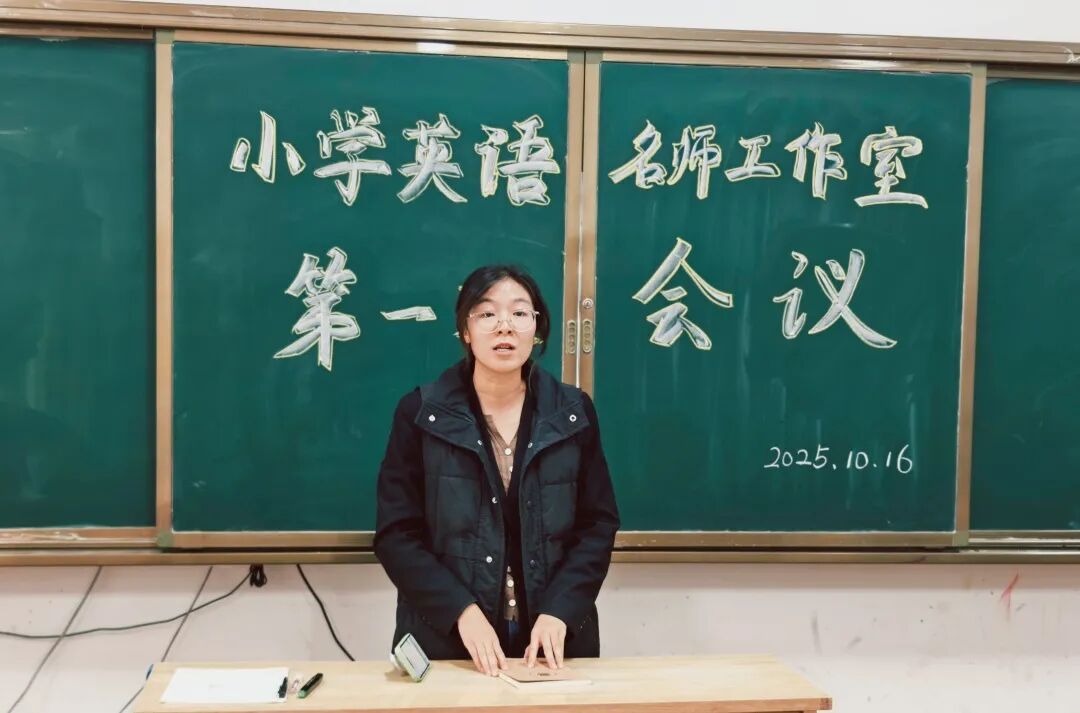 小学英语名师工作室
第一 会议
2025.10.16